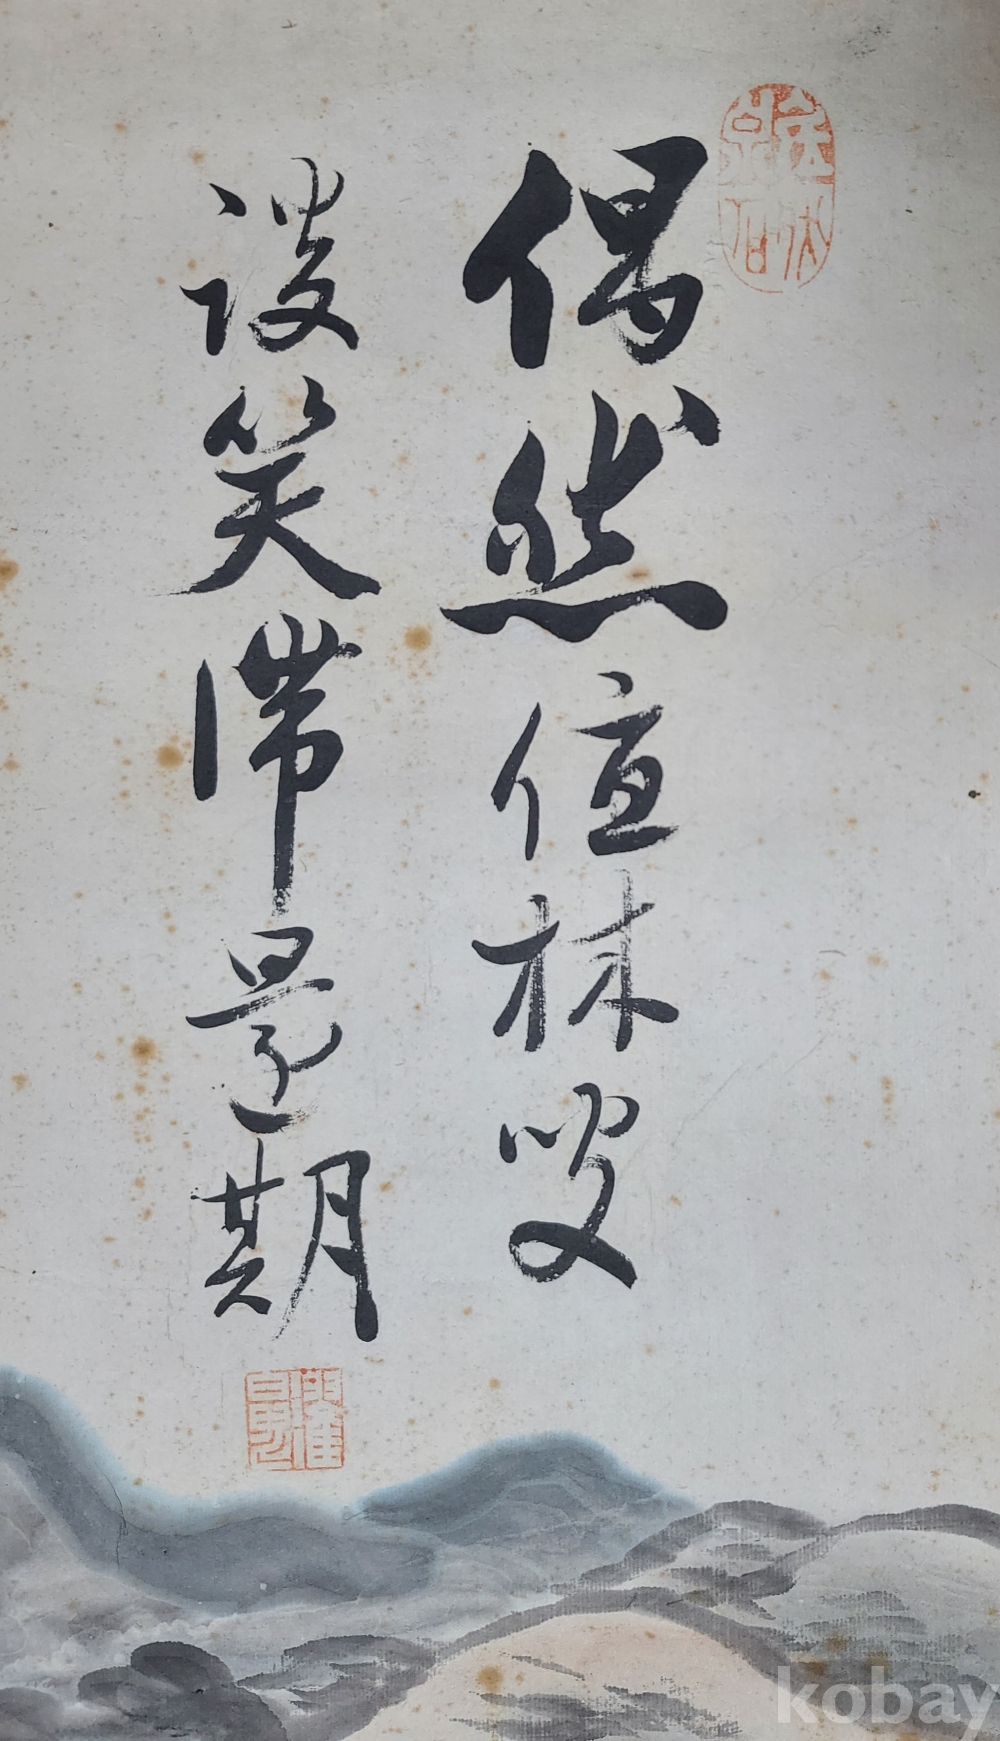 偶然值林叟
談笑滯還期
kobay